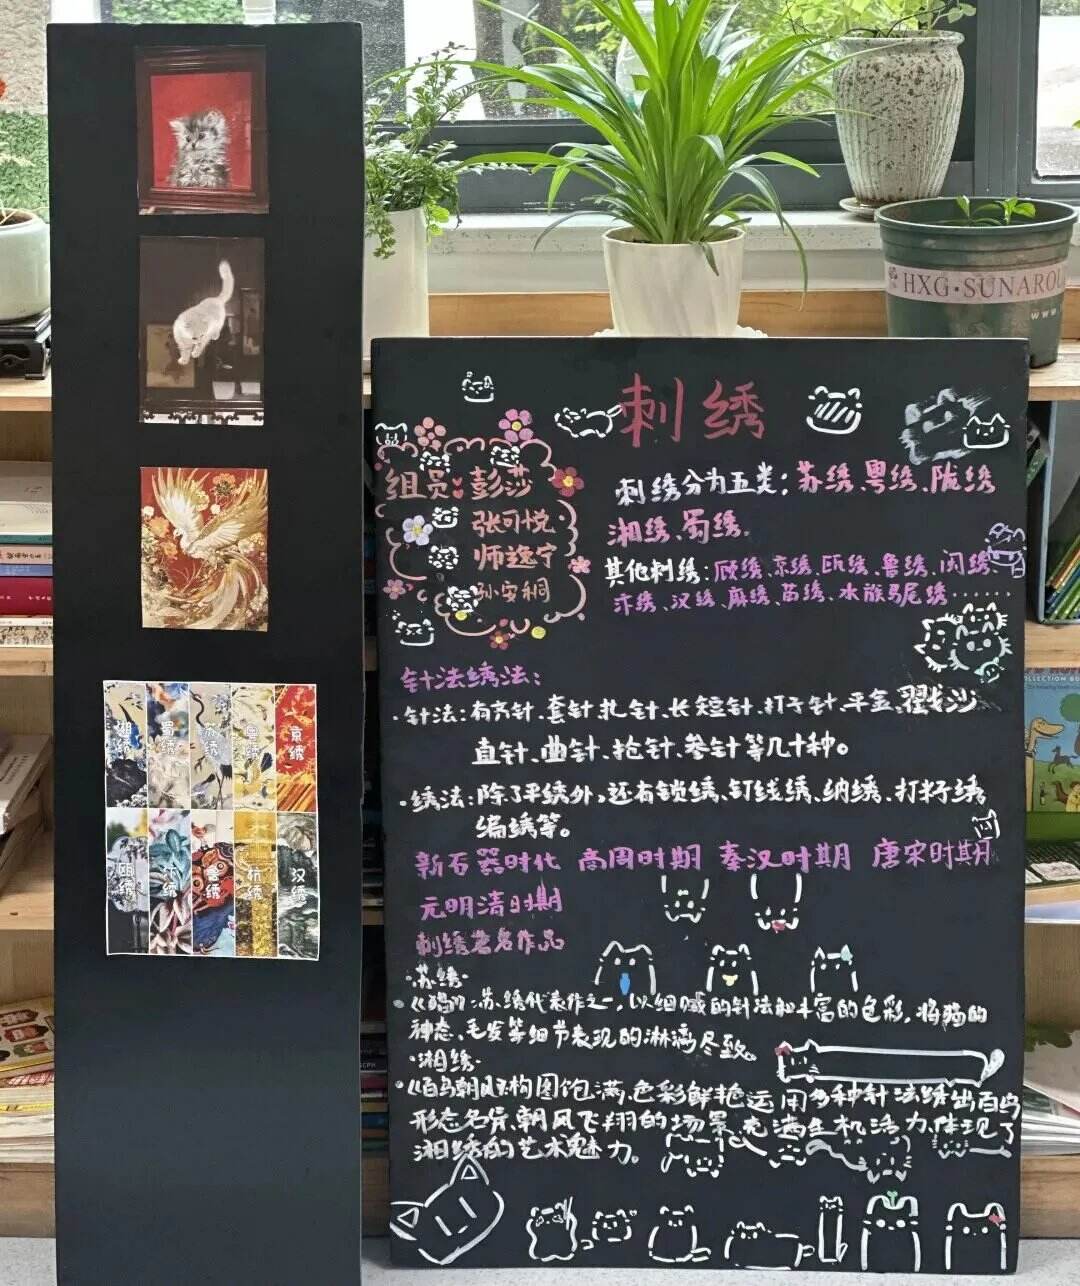 湘绣
蜀绣
苏绣
粤绣
京绣
瓯绣
鲁绣
杭绣
汉绣
HXG·SUNAROU
www
刺绣
组员 彭莎
张可悦
师逸宁
孙安桐
刺绣分为五类：苏绣、粤绣、陇绣
湘绣、蜀绣.
其他刺绣：顾绣、京绣、瓯绣、鲁绣、闽绣、
汴绣、汉绣、麻绣、苗绣、水族马尾绣……
针法绣法：
·针法：有齐针、套针、扎针、长短针、打子针、平金、戳沙
直针、曲针、抢针、参针等几十种。
·绣法：除了平绣外，还有锁绣、钉线绣、纳绣、打籽绣
编绣等。
新石器时代 商周时期 秦汉时期 唐宋时期
元明清时期
刺绣著名作品
·苏绣·
·《猫》：苏绣代表作之一，以细腻的针法和丰富的色彩，将猫的
神态、毛发等细节表现的淋漓尽致。
·湘绣·
·《百鸟朝凤》：构图饱满、色彩鲜艳运用多种针法绣出百鸟
形态各异、朝凤飞翔的场景、充满生机活力、体现了
湘绣的艺术魅力.
COLLECTION BO